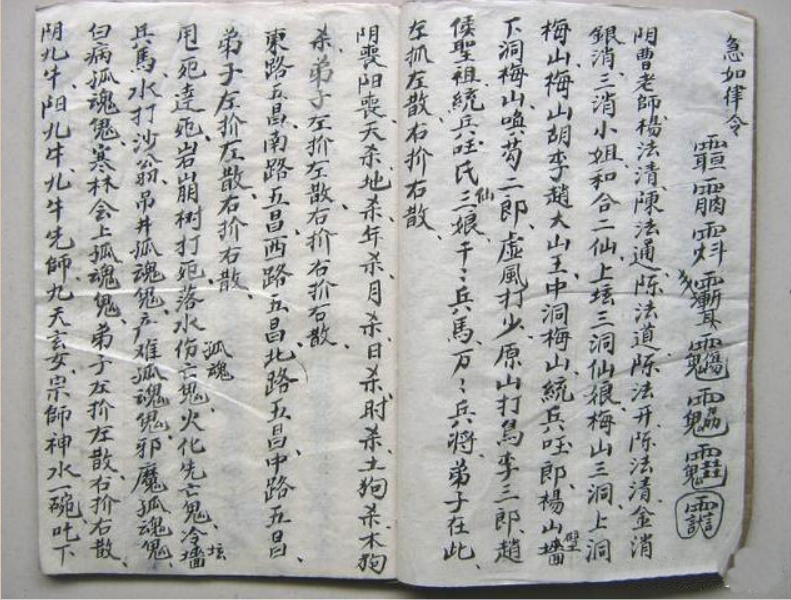 急如律令
阴曹老師楊法清、陳法通、陈法道陈法开陈法清金消
銀消、三消小姐、和合二仙上坛三洞仙娘梅山三洞、上洞
梅山、梅山胡李趙大山王中洞梅山、統兵郎、楊山墻壁
下洞梅山喚苟二郎、虚風打少、原山打鳥李三郎、趙
侯聖祖統兵氏三仙娘、千〻兵馬、万〻兵將、弟子在此、
左扴左散、右扴右散、
阴喪阳喪、天杀、地杀、年杀、月杀、日杀、时杀、土狗杀、木狗
杀、弟子左扴左散右扴右散、
東路五昌、南路五昌西路五昌北路五昌中路五昌、
弟子左扴左散右扴右散、
甩死逹死、岩崩树打死落水伤亡鬼、火化先亡鬼、冷墙坛
兵馬、水打沙翁、吊井孤魂鬼、产难孤魂鬼、邪魔孤魂鬼、孤魂
白病孤魂鬼、寒林会上孤魂鬼、弟子左扴左散、右扴右散、
阴九牛、阳九牛、九牛先師、九天玄女、宗師神水一碗、吐下